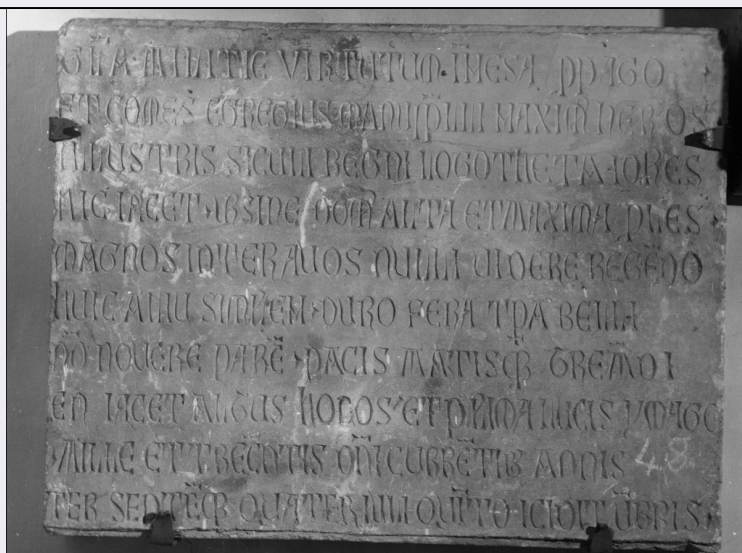 GÑA MILITIE VIRTUTUM INMESA PPAGO
ET COMES EGREGIUS MANUPPLLI MAXIM HEROS
ILLUSTRIS SICULI REGNI LOGOTHETA IOHES
HIC IACET UBSINE NOM ALTA ET MAXIMA PLES
MAGNOS INTER AUOS NULLI UIDERE REGEDO
HUIC ALIU SIMILEM DURO FERA TPA BELLI
NO NOUERE PARE PACIS MATISQ GREMIO
EN IACET ALTUS HOLOS ET PRIMA LUCIS YMAGO
MILLE ET TRECENTIS DNI CURRETIB ANNIS
TER QUATER IULI QUITO
48